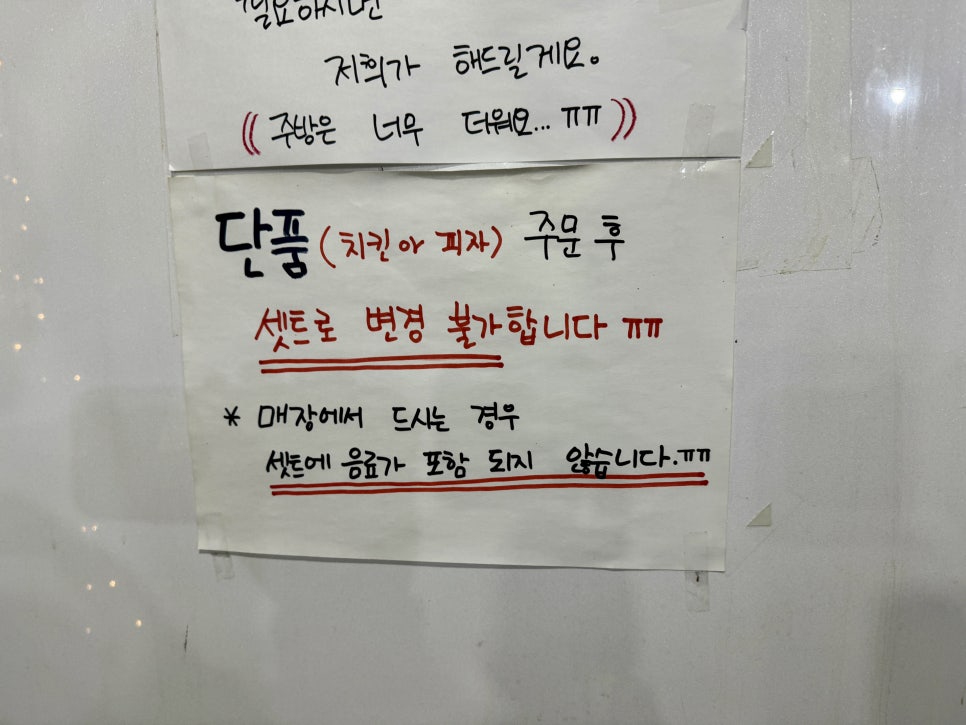 필요하시면
저희가 해드릴게요.
((주방은 너무 더워요... ㅠㅠ))
단품 (치킨아 피자) 주문 후
셋트로 변경 불가합니다 ㅠㅠ
* 매장에서 드시는 경우
셋트에 음료가 포함 되지 않습니다.ㅠㅠ